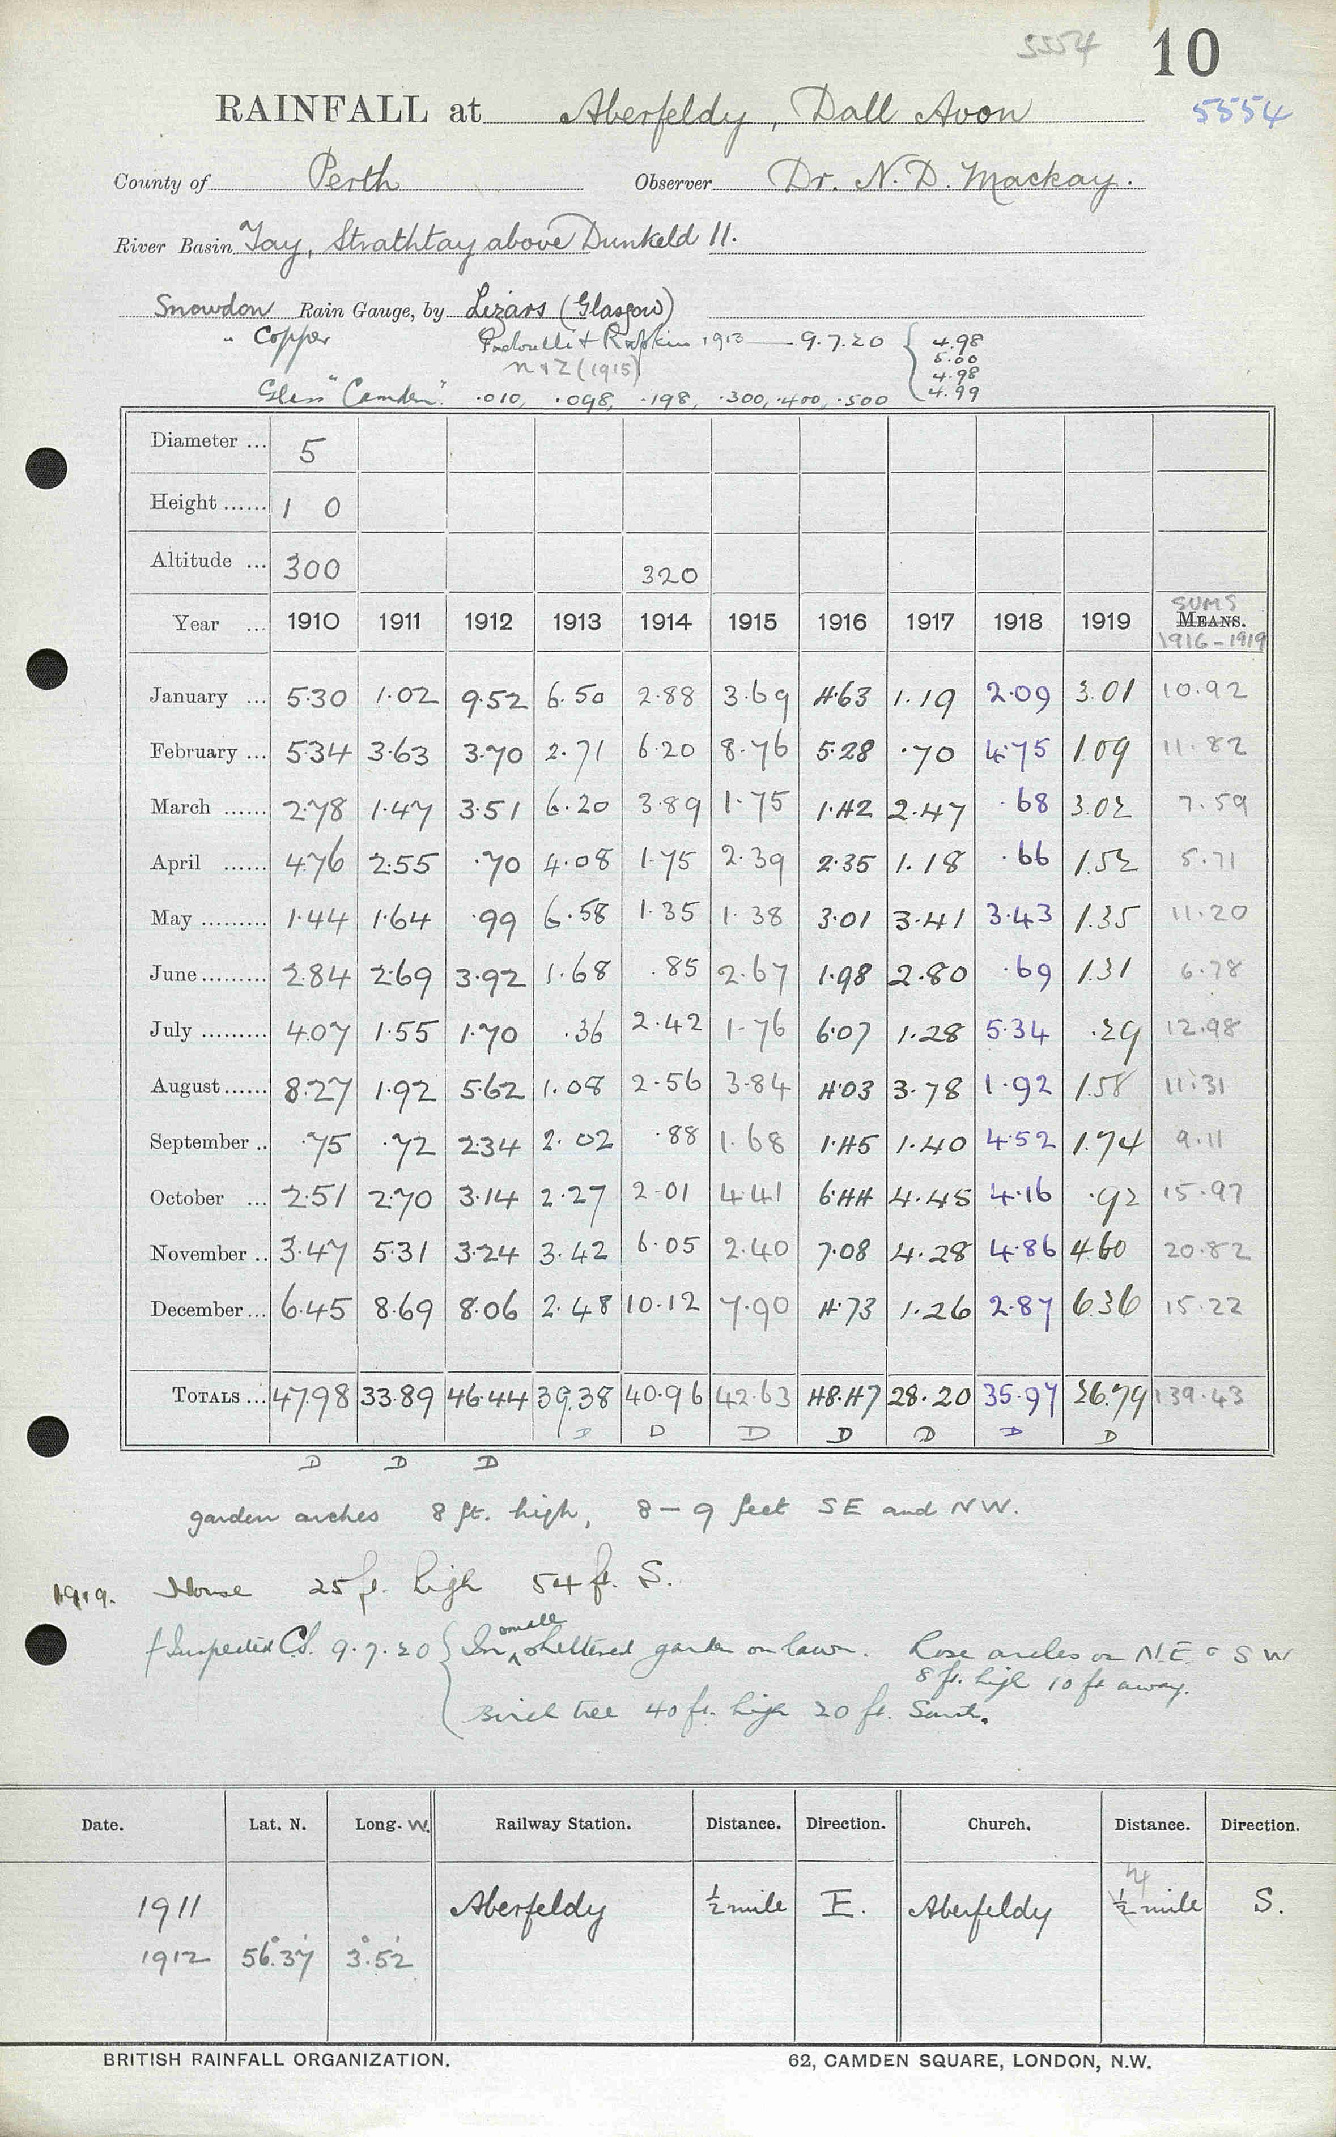 5554 10
RAINFALL at Aberfeldy, Dall Avon 5554
County of Perth Observer Dr. N. D. Mackay.
River Basin Tay, Strathtay above Dunkeld 11.
Snowdon Rain Gauge, by Lizars (Glasgow)
" Copper 1913 — 9.7.20 { 4.98
5.00
N & Z (1915) 4.98
Glass "Camden" .010, .098, .198, .300, .400, .500 4.99
Diameter ... 5
Height ...... 1 0
Altitude ... 300 320
SUMS
Year ... 1910 1911 1912 1913 1914 1915 1916 1917 1918 1919 MEANS.
1916-1919
January ... 5.30 1.02 9.52 6.50 2.88 3.69 4.63 1.19 2.09 3.01 10.92
February ... 5.34 3.63 3.70 2.71 6.20 8.76 5.28 .70 4.75 1.09 11.82
March ...... 2.78 1.47 3.51 6.20 3.89 1.75 1.42 2.47 .68 3.02 7.59
April ...... 4.76 2.55 .70 4.08 1.75 2.39 2.35 1.18 .66 1.52 5.71
May ......... 1.44 1.64 .99 6.58 1.35 1.38 3.01 3.41 3.43 1.35 11.20
June ......... 2.84 2.69 3.92 1.68 .85 2.67 1.98 2.80 .69 1.31 6.78
July ......... 4.07 1.55 1.70 .36 2.42 1.76 6.07 1.28 5.34 .29 12.98
August ...... 8.27 1.92 5.62 1.08 2.56 3.84 4.03 3.78 1.92 1.58 11.31
September .. .75 .72 2.34 2.02 .88 1.68 1.45 1.40 4.52 1.74 9.11
October ... 2.51 2.70 3.14 2.27 2.01 4.41 6.44 4.45 4.16 .92 15.97
November .. 3.47 5.31 3.24 3.42 6.05 2.40 7.08 4.28 4.86 4.60 20.82
December ... 6.45 8.69 8.06 2.48 10.12 7.90 4.73 1.26 2.87 6.36 15.22
TOTALS ... 47.98 33.89 46.44 39.38 40.96 42.63 48.47 28.20 35.97 26.79 139.43
D D D D D D D
D D D
garden arches 8 ft. high, 8 – 9 feet SE and NW.
1919. House 25 ft. high 54 ft. S.
Inspected C.S. 9.7.20 { In small sheltered garden on lawn. Rose arches on N.E. & SW
8 ft. high 10 ft away.
Birch tree 40 ft. high 20 ft. South.
Date. Lat. N. Long. W. Railway Station. Distance. Direction. Church. Distance. Direction.
1/4
1911 Aberfeldy ½ mile E. Aberfeldy ½ mile S.
1912 56°.37' 3°.52'
BRITISH RAINFALL ORGANIZATION. 62, CAMDEN SQUARE, LONDON, N.W.